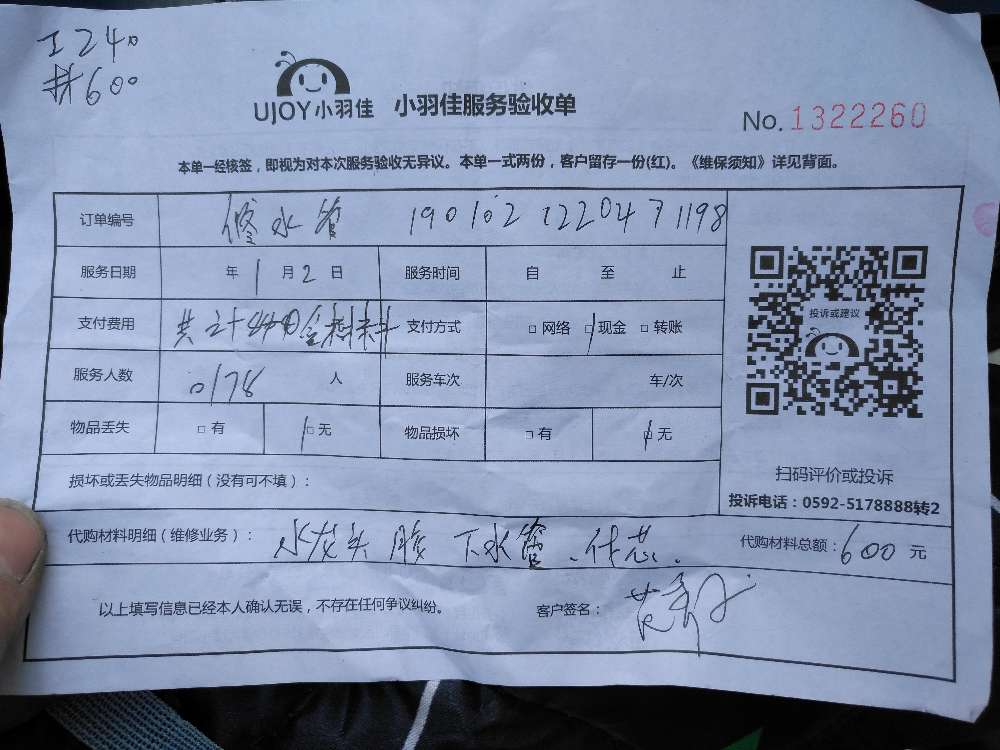 工240
材600
UJOY小羽佳 小羽佳服务验收单
No. 1322260
本单一经核签，即视为对本次服务验收无异议。本单一式两份，客户留存一份(红)。《维保须知》详见背面。
订单编号 修水管 1901021220471198
服务日期 年1月2日 服务时间 自 至 止
支付费用 共计840 含材料 支付方式 □网络 □现金 □转账
服务人数 0178 人 服务车次 车/次
物品丢失 □有 □无 物品损坏 □有 □无
投诉或建议
扫码评价或投诉
投诉电话：0592-5178888转2
损坏或丢失物品明细（没有可不填）：
代购材料明细（维修业务）： 水龙头 胶 下水管、 代购材料总额：600元
以上填写信息已经本人确认无误，不存在任何争议纠纷。 客户签名：